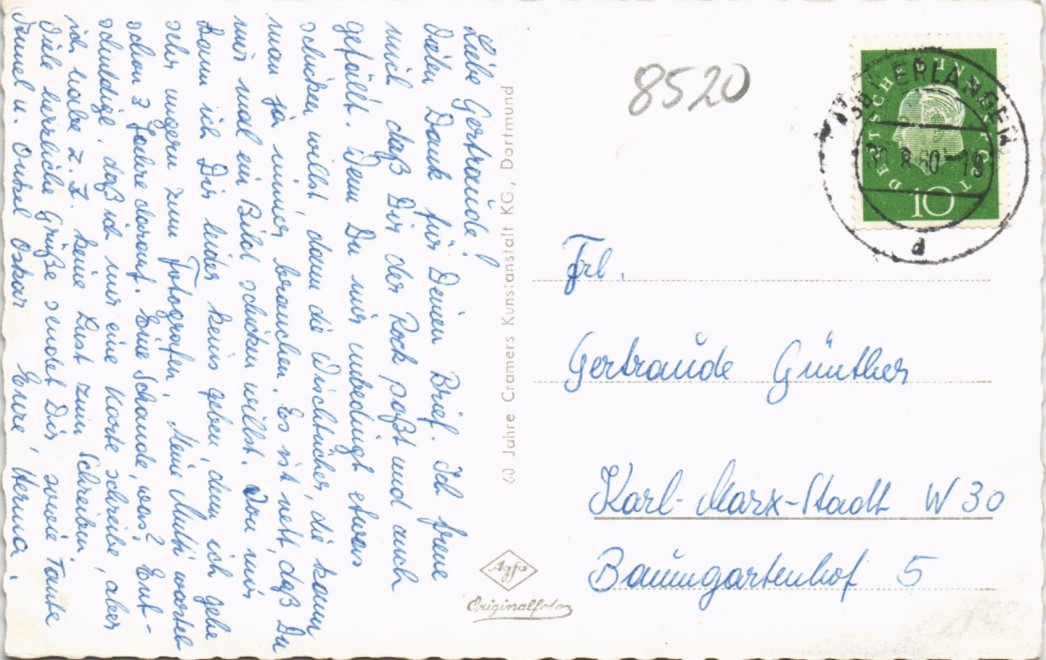 Liebe Gertraude!
Vielen Dank für Deinen Brief. Ich freue
mich, daß Dir der Rock paßt und auch
gefällt. Wenn Du mir unbedingt etwas
schicken willst, dann die Wischtücher, die kann
man ja immer brauchen. Es ist nett, daß Du
mir mal ein Bild schicken willst. Von mir
kann ich Dir leider keins geben, denn ich gehe
sehr ungern zum Fotografen. Meine Mutti wartet
schon 3 Jahre darauf. Eine Schande, was? Ent-
schuldige, daß ich nur eine Karte schreibe, aber
ich habe z. Z. keine Lust zum Schreiben.
Viele herzliche Grüße sendet Dir sowie Tante
u. Onkel Oskar Eure Herma.
60 Jahre Cramers Kunstanstalt KG., Dortmund
Agfa
Originalfoto
8520
DEUTSCHE BUNDESPOST
10
ERLANGEN
8.60-18
d
Frl.
Gertraude Günther
Karl-Marx-Stadt W 30
Baumgartenhof 5